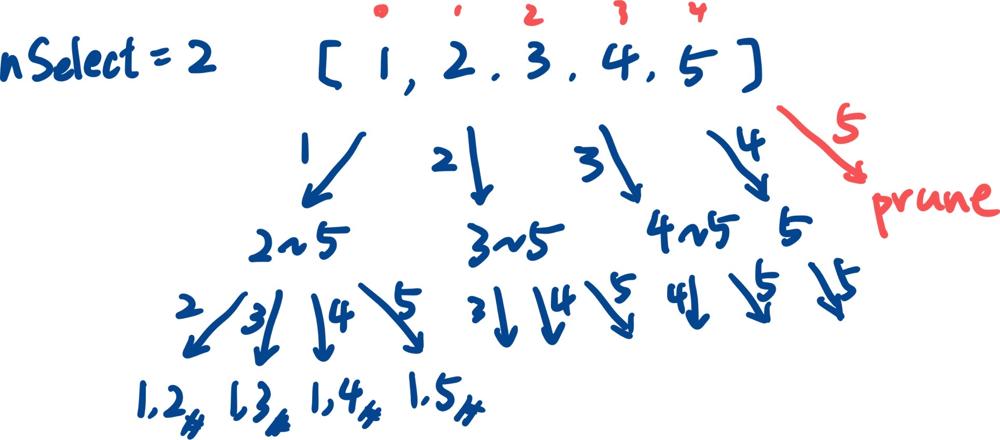 0 1 2 3 4
nSelect = 2 [ 1, 2. 3. 4. 5 ]
1 2 3 4 5
prune
2~5 3~5 4~5 5
2 3 4 5 3 4 5 4 5 5
1.2 1.3 1,4 1.5